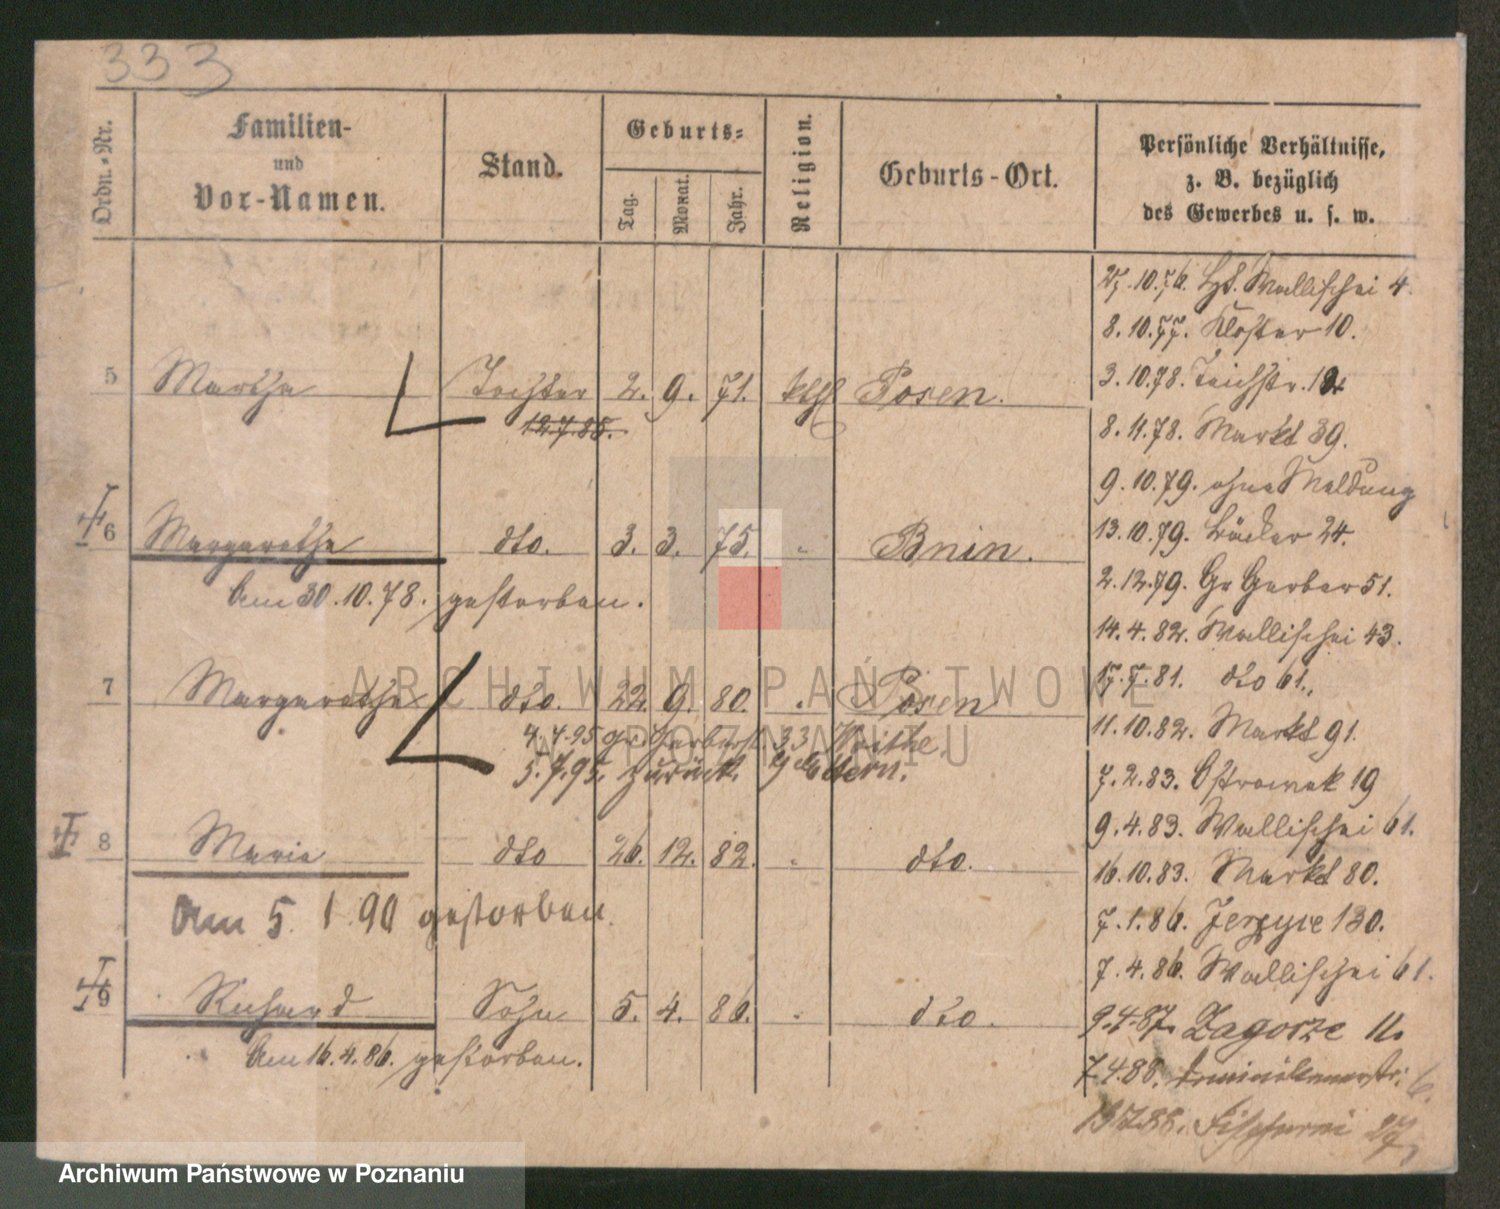 333
Ordn.-Nr.
Familien-
und
Vor-Namen.
Stand.
Geburts-
Tag.
Monat.
Jahr.
Religion.
Geburts-Ort.
Persönliche Verhältnisse,
z. B. bezüglich
des Gewerbes u. s. w.
5 Martha Tochter 2. 9. 71. kthl Posen.
12.7.85.
6 Margarethe dto. 3. 3. 75. " Bnin.
Am 30.10.78. gestorben.
7 Margarethe dto. 22. 9. 80. " Posen
4.4.95 gr. Gerberst. 33
5.7.95. zurück. z. d. Eltern.
8 Maria dto 26. 12. 82. " dto.
Am 5. 1 90 gestorben.
9 Richard Sohn 5. 4. 86. " dto.
Am 16.4.86. gestorben.
27.10.76. Wallischei 4.
8.10.77. Kloster 10.
3.10.78. Teichstr.
8.11.78. Markt 39.
9.10.79. ohne Meldung
13.10.79. Bäcker 24.
2.12.79. Gr Gerber 51.
14.4.82. Wallischei 43.
17.7.81. dto 61.
11.10.82. Markt 91.
7.2.83. Ostrowek 19
9.4.83. Wallischei 61.
16.10.83. Markt 80.
7.1.86. Jerzyce 130.
7.4.86. Wallischei 61.
9.4.87. Zagorze 11.
7.4.88. Dominikanerstr. 6.
Fischerei 27
ARCHIWUM PAŃSTWOWE
W POZNANIU
Archiwum Państwowe w Poznaniu